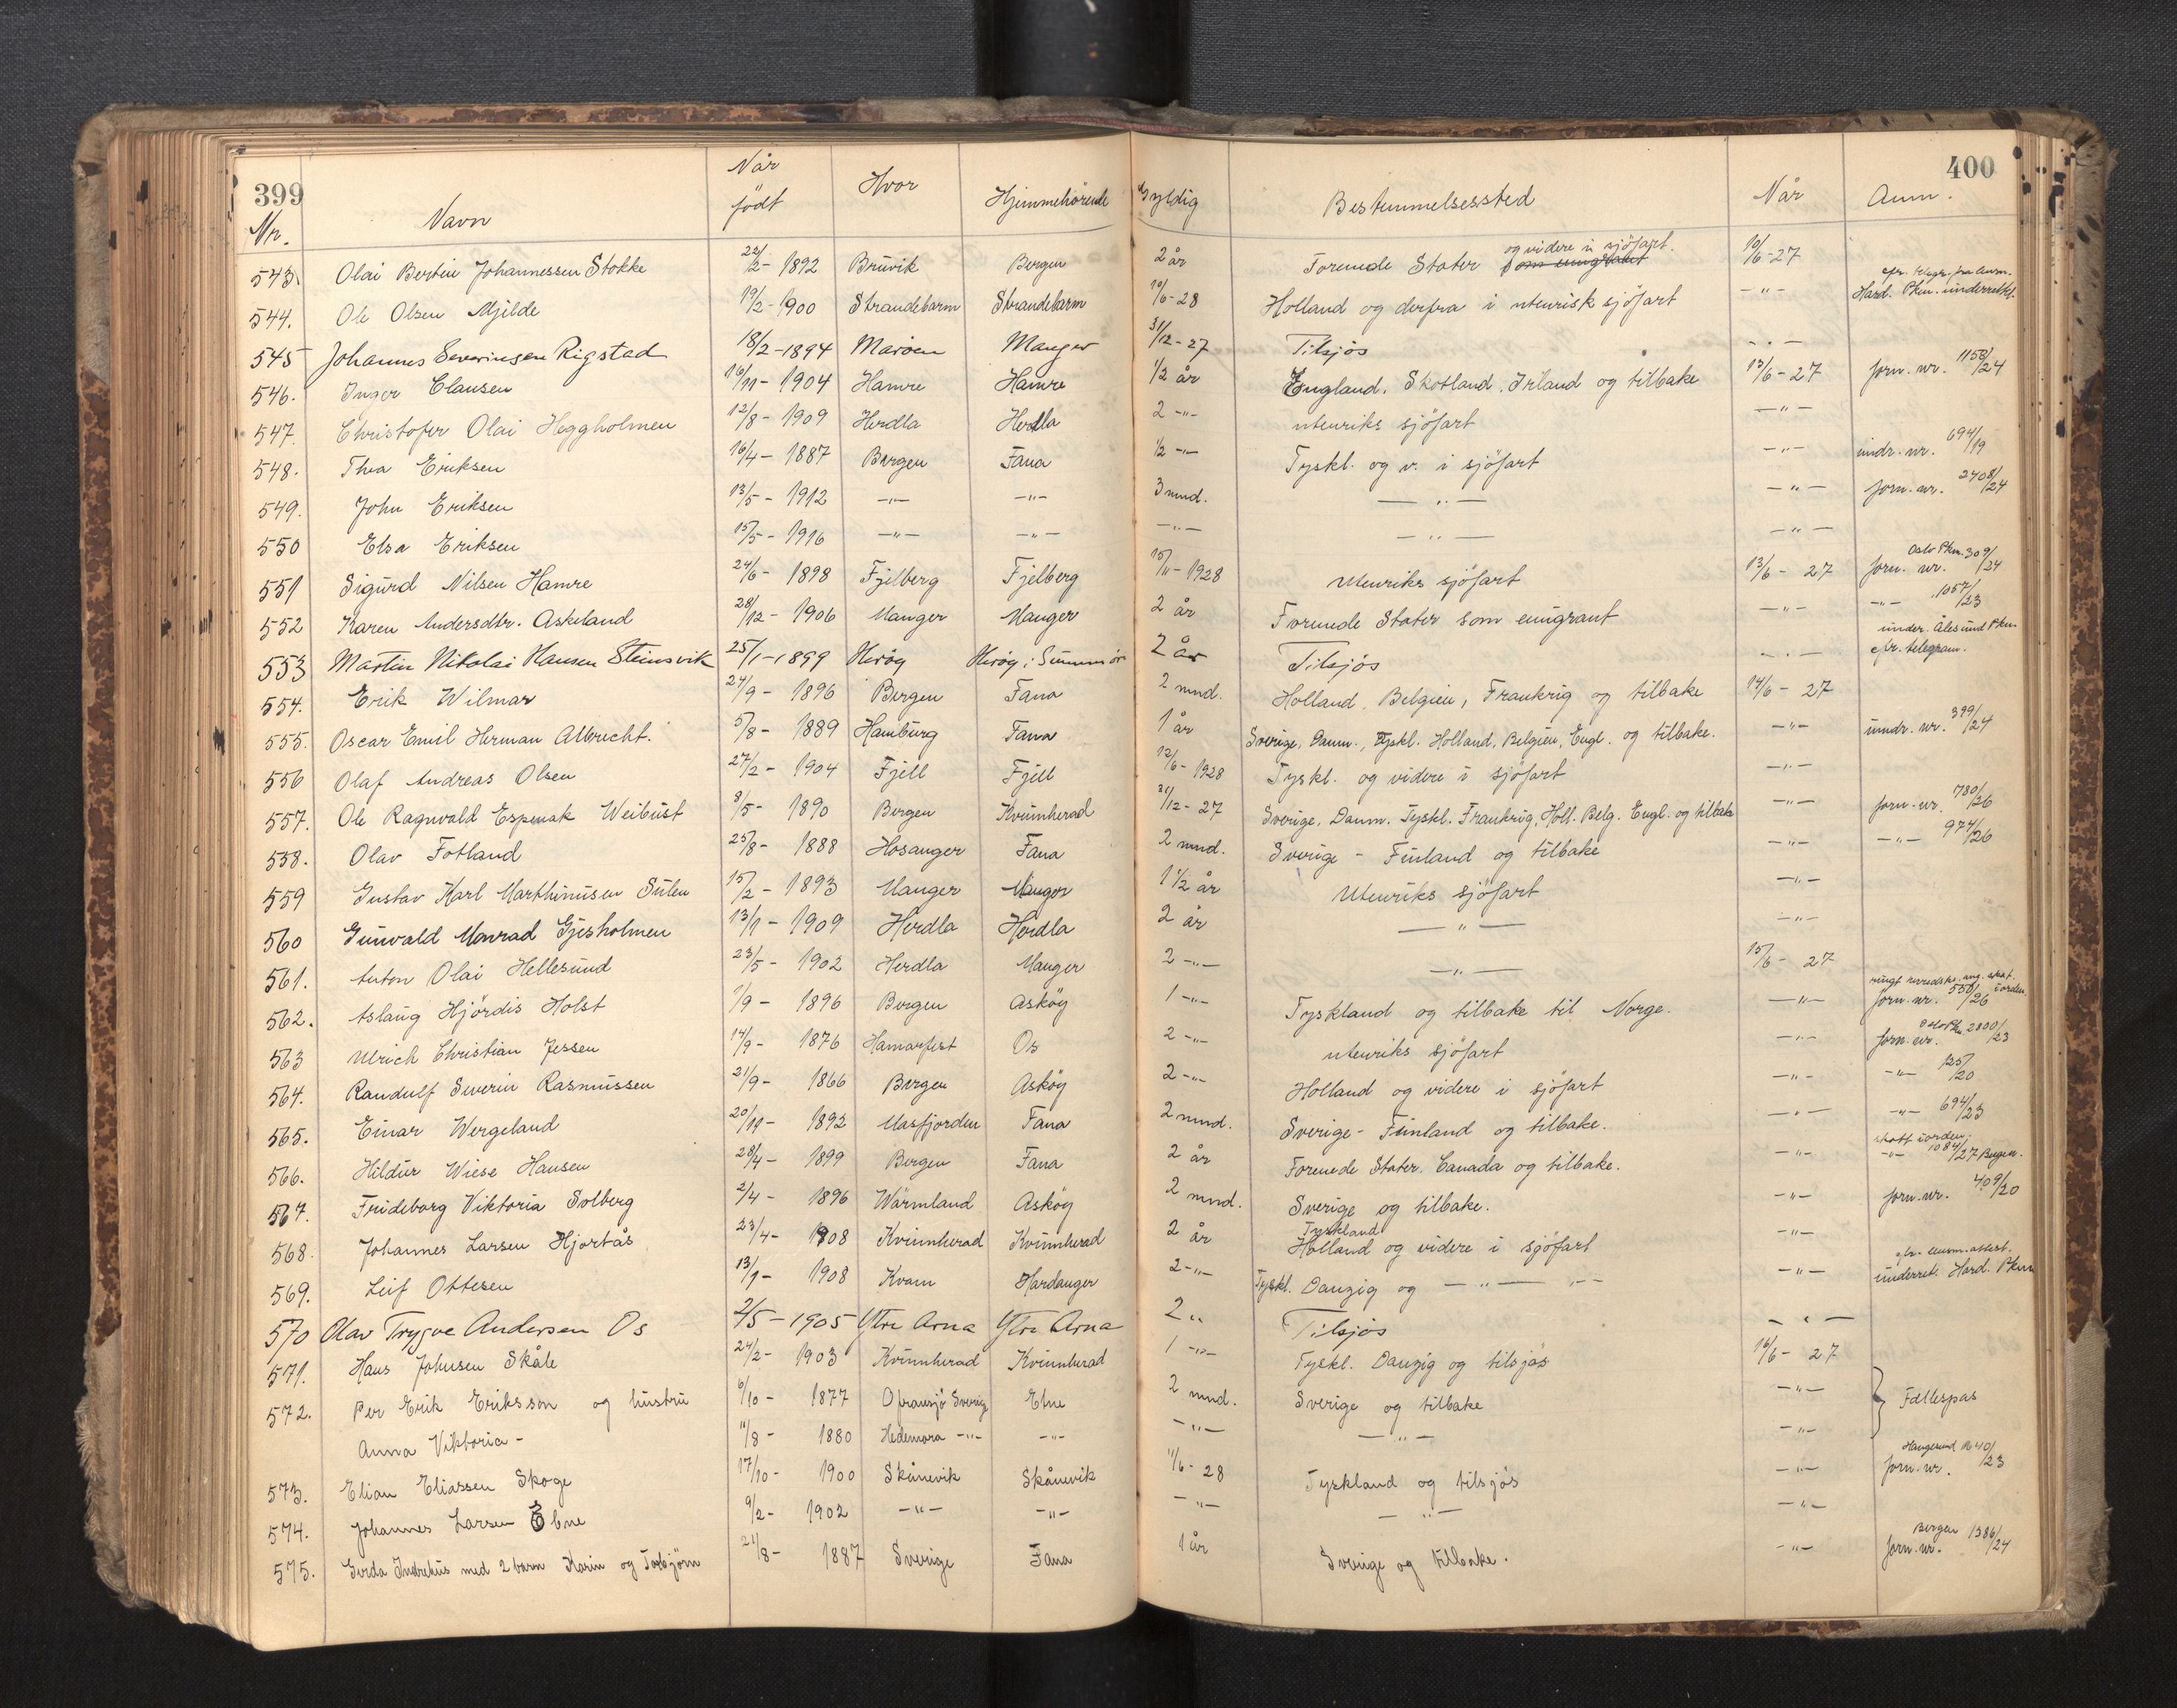 399 400
Nr. Navn Når født Hvor Hjemmehørende Gyldig Bestemmelsessted Når Anm.
543. Olai Bertin Johannessen Stokke 22/2 - 1892 Bruvik Bergen 2 år Forenede Stater som emigrant og videre i sjöfart. 10/6-27
544. Ole Olsen Mjelde 19/2-1900 Strandebarm Strandebarm 10/6-28 Holland og derfra i utenrisk sjöfart -"- efr. telegr. fra Hard. Pkm. underrettet.
545 Johannes Severinsen Rigstad 18/2-1894 Maröen Manger 31/12-27 Tilsjös -"-
546. Inger Clausen 16/11-1904 Hamre Hamre 1/2 år England. Skotland. Irland og tilbake 13/6-27 forn. nr. 1158/24
547. Christofer Olai Heggholmen 12/8-1909 Herdla Herdla 2 -"- utenriks sjöfart -"-
548. Thea Eriksen 16/4-1887 Bergen Fana 1/2 -"- Tyskl. og v. i sjöfart -"- undr. nr. 694/19
549. John Eriksen 13/5-1912 -"- -"- 3 mnd. -"- -"- forn. nr. 2408/24
550 Elsa Eriksen 15/5-1916 -"- -"- -"- -"- -"-
551 Sigurd Nilsen Hamre 24/6-1898 Fjelberg Fjelberg 15/11-1928 Utenriks sjöfart 13/6-27 forn. nr. Oslo Pkm. 309/24
552 Karen Andersdtr. Askeland 28/12-1906 Manger Manger 2 år Forenede Stater som emigrant -"- -"- 1057/23
553 Martin Nikolai Hansen Steinsvik 25/1-1899 Heröy Heröy i Sunnmör 2 år Tilsjös -"- under. Ålesund Pkm efr. telegram.
554. Erik Wilmar 24/9-1896 Bergen Fana 2 mnd. Holland, Belgien, Frankrig og tilbake 14/6-27
555. Oscar Emil Herman Albrecht. 5/8-1889 Hamburg Fana 1 år Sverige, Danm., Tyskl. Holland, Belgien, Engl. og tilbake. -"- undr. nr. 399/24
556 Olaf Andreas Olsen 27/2-1904 Fjell Fjell 12/6-1928 Tyskl. og videre i sjöfart -"-
557. Ole Ragnvald Espevak Weibust 8/5-1890 Bergen Kvinnherad 31/12-27 Sverige, Danm. Tyskl. Frankrig, Holl. Belg. Engl. og tilbake -"- forn. nr. 780/26
558. Olav Fotland 25/8-1888 Hosanger Fana 2 mnd. Sverige - Finland og tilbake -"- -"- 974/26
559 Gustav Karl Marthinusen Sulen 15/2-1893 Manger Manger 1 1/2 år Utenriks sjöfart -"-
560 Gunvald Monrad Gjesholmen 13/1-1909 Herdla Herdla 2 år -"- -"-
561. Anton Olai Hellesund 23/5-1902 Herdla Manger 2 -"- -"- 15/6-27
562. Aslaug Hjördis Holst 1/9-1896 Bergen Asköy 1 -"- Tyskland og tilbake til Norge. -"- forn. nr. 550/26
563 Ulrich Christian Jessen 14/9-1876 Hamarfest Os 2 -"- utenriks sjöfart -"- forn. nr. Oslo Pk. 2800/23
564. Randulf Severin Rasmussen 21/9-1866 Bergen Asköy 2 -"- Holland og videre i sjöfart -"- -"- 125/20
565. Einar Wergeland 20/11-1892 Masfjorden Fana 2 mnd. Sverige - Finland og tilbake. -"- -"- 694/23
566. Hildur Wiese Hansen 28/4-1899 Bergen Fana 2 år Forenede Stater. Canada og tilbake. -"- skatt iorden -"- 1084/27 Bergen.
567. Frideborg Viktoria Solberg 2/4-1896 Wärmland Asköy 2 mnd. Sverige og tilbake. -"- forn. nr. 409/20
568. Johannes Larsen Hjortås 23/4-1908 Kvinnherad Kvinnherad 2 år Tyskland Holland og videre i sjöfart -"-
569. Leif Ottesen 13/1-1908 Kvam Hardanger 2 -"- Tyskl. Danzig og -"- -"- underret. Hard. Pkm
570 Olav Trygve Andersen Os 2/5-1905 Ytre Arna Ytre Arna 2 " Tilsjös -"-
571. Hans Johnsen Skåle 24/2-1903 Kvinnherad Kvinnherad 1 -"- Tyskl. Danzig og tilsjös 16/6-27
572. Per Erik Eriksson og hustru 6/10-1877 Ofransjö Sverige Etne 2 mnd. Sverige og tilbake -"- } Fællespas
Anna Viktoria - 11/8-1880 Hedemora -"- -"- -"- -"- -"-
573. Elian Eliassen Skoge 17/10-1900 Skånevik Skånevik 11/6-28 Tyskland og tilsjös -"- forn. nr. Haugesund 40/23
574. Johannes Larsen Ebne 9/2-1902 -"- -"- -"- -"- -"-
575. Gerda Indrehus med 2 barn Karin og Torbjörn 21/8-1887 Sverige Fana 1 år Sverige og tilbake. -"- forn. nr. Bergen 1386/24